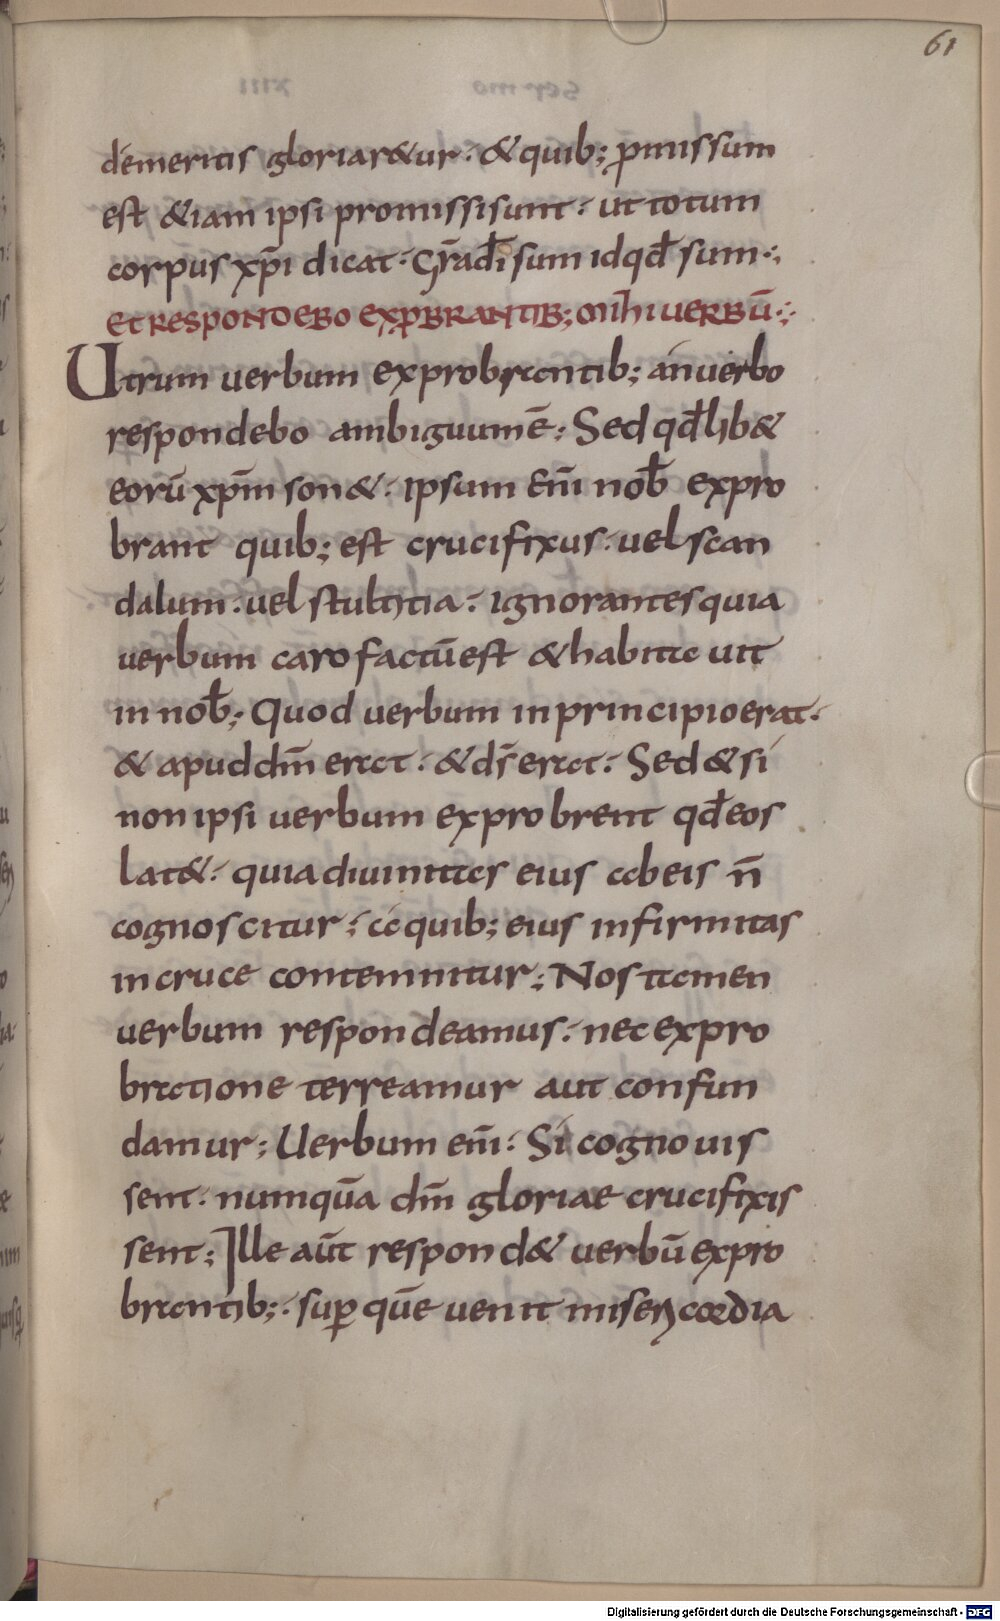 61
demeritis gloriar&ur· &quib; p̄missum
est &iam ipsi promissisunt· ut totum
corpus xp̄i dicat· Gr̄a dī sum idqđ sum·;
ET RESPONDEBO EXP̄BRANTIB; MIHI UERBŪ·;
Utrum uerbum exprobrantib; an uerbo
respondebo ambiguum ē; Sed qđlib&
eorū xp̄m son&· Ipsum em̄ nob̄ expro
brant quib; est crucifixus· uel scan
dalum· uel stultitia· ignorantes quia
uerbum caro factū est &habitauit
in nob̄; Quod uerbum inprincipio erat·
& apud dm̄ erat· &ds̄ erat· Sed &si
non ipsi uerbum exprobrent qđ eos
lat&· quia diuinitas eius abeis n̄
cognoscitur; aquib; eius infirmitas
incruce contemnitur; Nos tamen
uerbum respondeamus· nec expro
bratione terreamur aut confun
damur; Uerbum em̄· Si cognouis
sent· numquā dm̄ gloriae crucifixis
sent; Ille aūt respond& uerbū expro
brantib;· sup̄ quē uenit misericordia
Digitalisierung gefördert durch die Deutsche Forschungsgemeinschaft - DFG